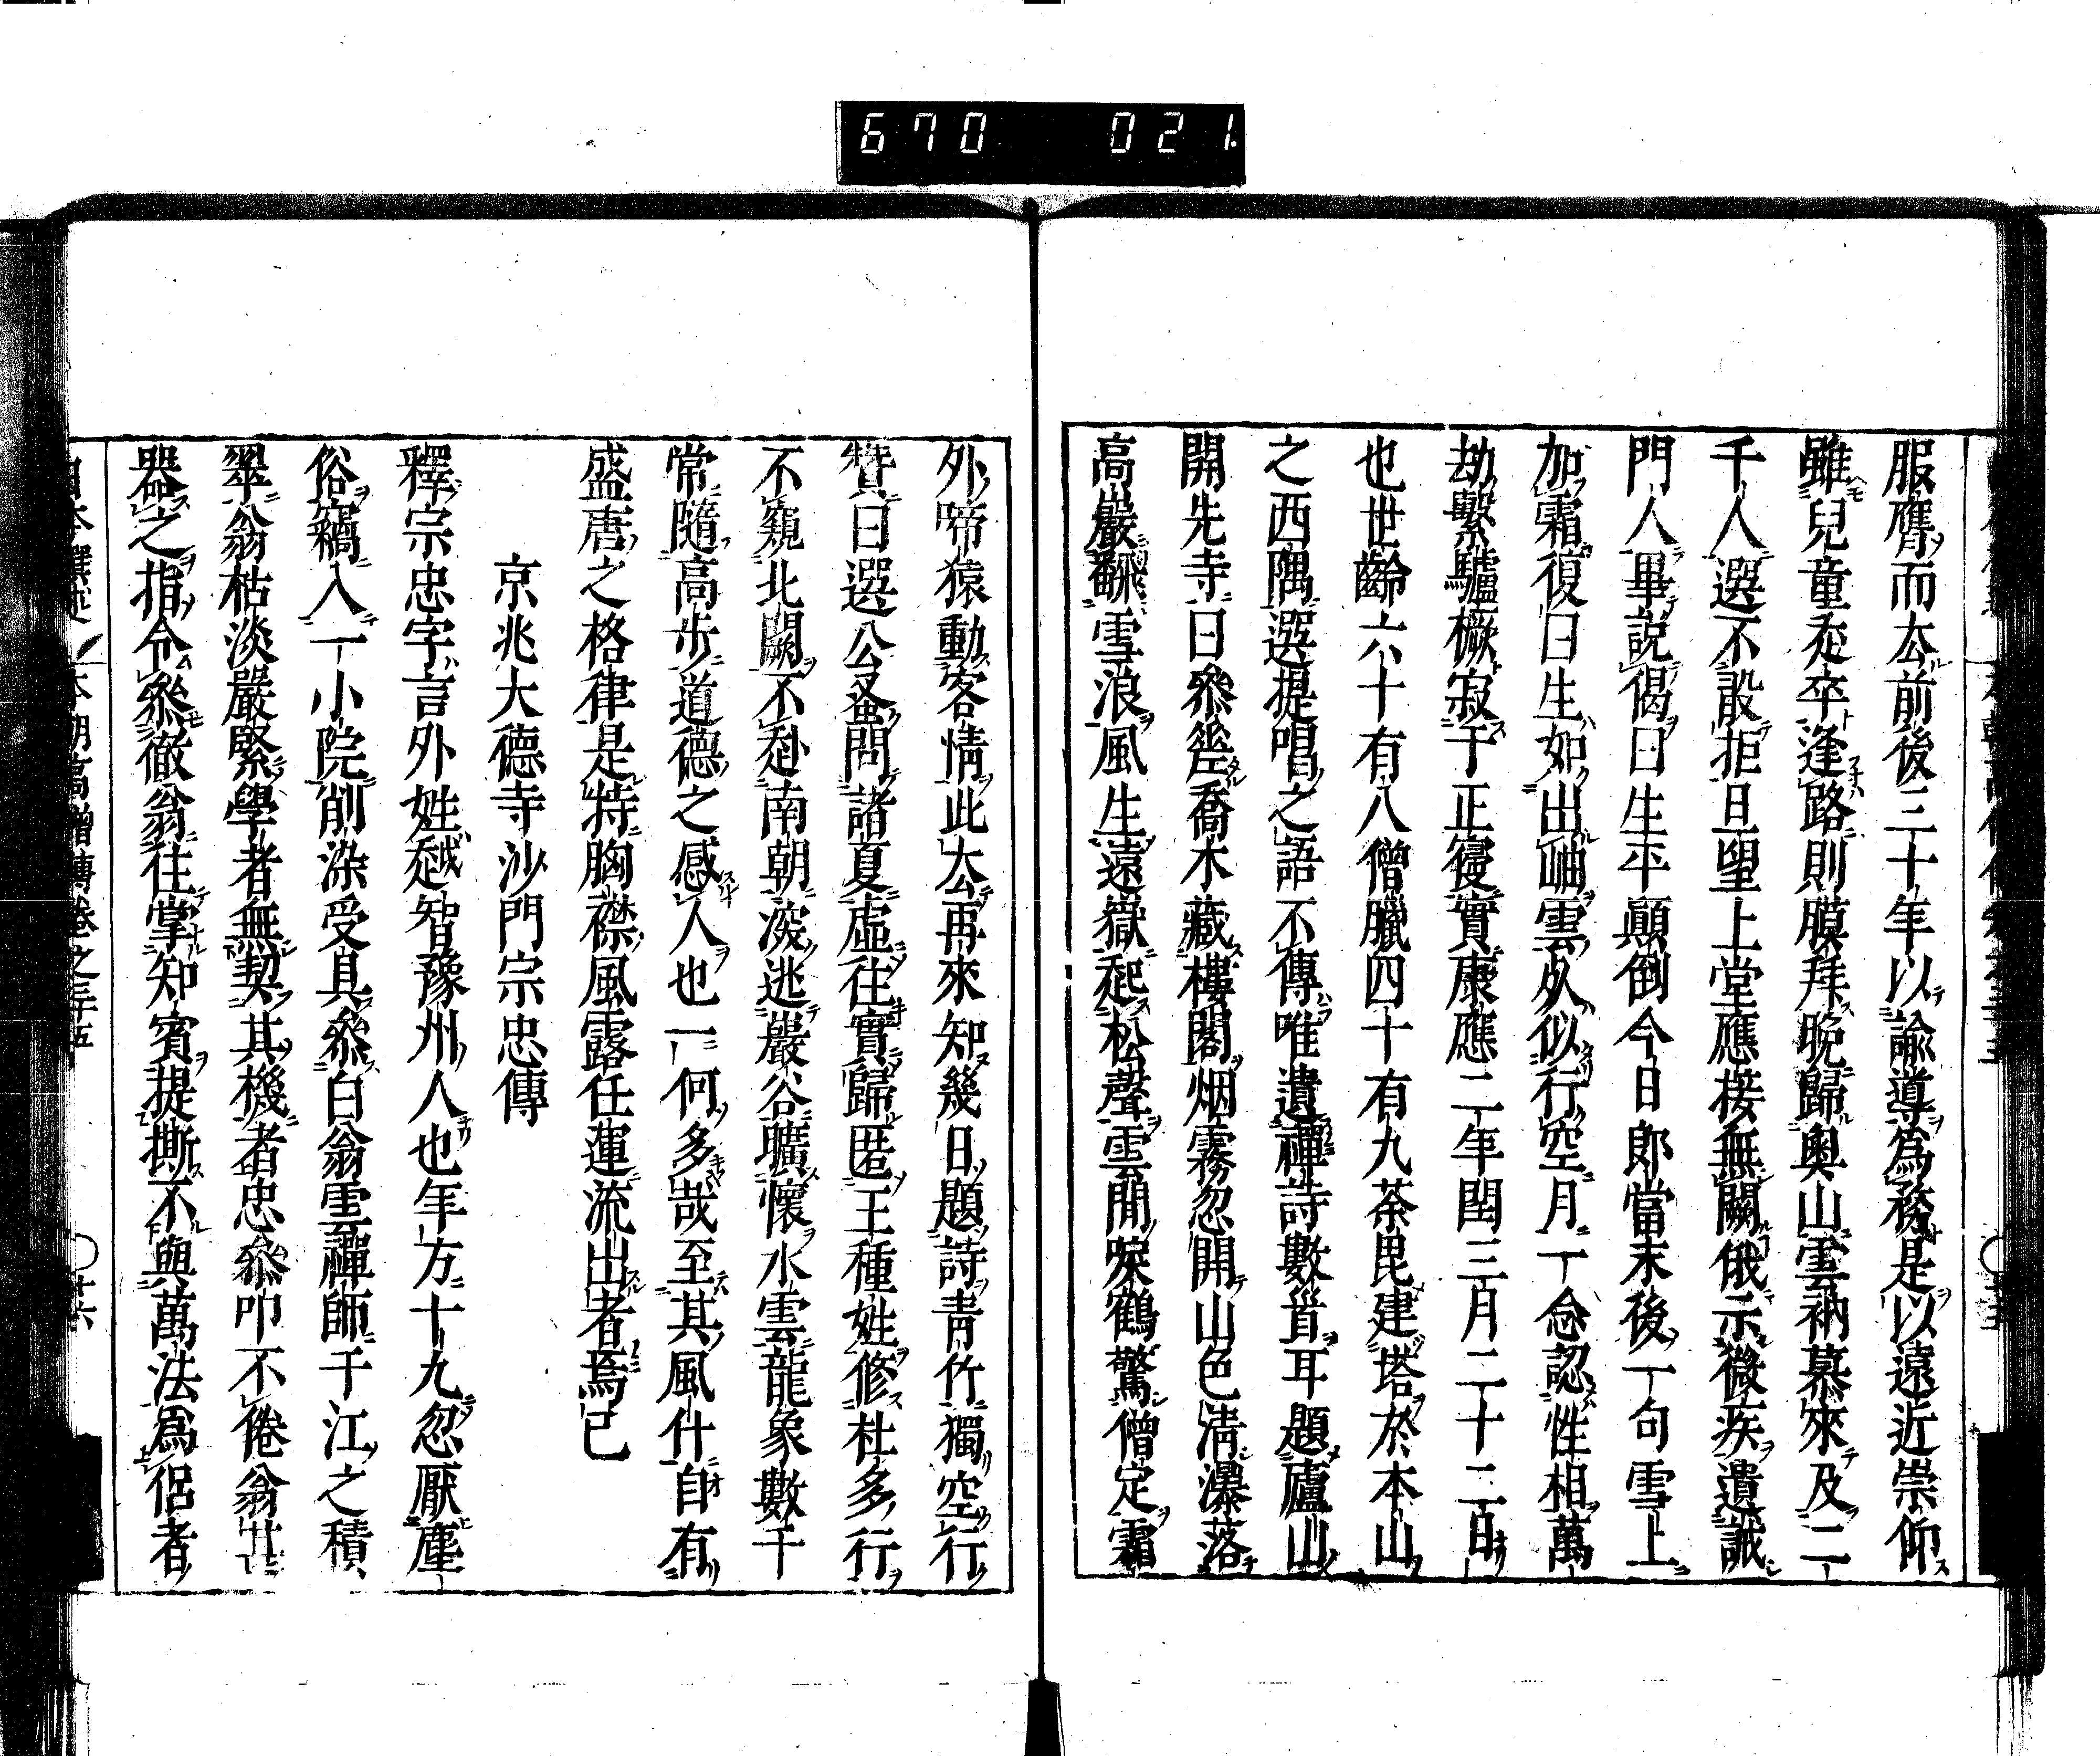 670 021
服膺而去前後三十年以諭導爲務是以遠近崇仰
雖兒童走卒逢路則膜拜晚歸奧山雲衲慕來及二
千人選不設拒旦望上堂應接無闕俄示微疾遺誡
門人畢說偈曰生平顛倒今日郎當末後一句雪上
加霜復曰生如出岫雲死似行空月一念認性相萬
劫繫驢橛寂于正寢實康應二年閏三月二十二日
也世齡六十有八僧臘四十有九茶毘建塔於本山
之西隅選提唱之語不傳唯遺禪詩數首耳題廬山
開先寺曰參差喬木藏樓閣烟霧忽開山色淸瀑落
高巖翻雪浪風生遠嶽起松聲雲閒唳鶴驚僧定霜
外啼猿動客情此去再來知幾日題詩靑竹獨空行
贊曰選公蚤問諸夏虛往實歸匿王種姓修杜多行
不窺北闕不赴南朝深逃巖谷曠懷水雲龍象數千
常隨高步道德之感人也一何多哉至其風什自有
盛唐之格律是特胸襟風露任運流出者焉已
京兆大德寺沙門宗忠傳
釋宗忠字言外姓越智豫州人也年方十九忽厭塵
俗竊入一小院削染受具參白翁雲禪師于江之積
翠翁枯淡嚴緊學者無契其機者忠參叩不倦翁甚
器之指令參徹翁往掌知賓提撕不與萬法爲侶者
本朝高僧傳卷之三十五
十六